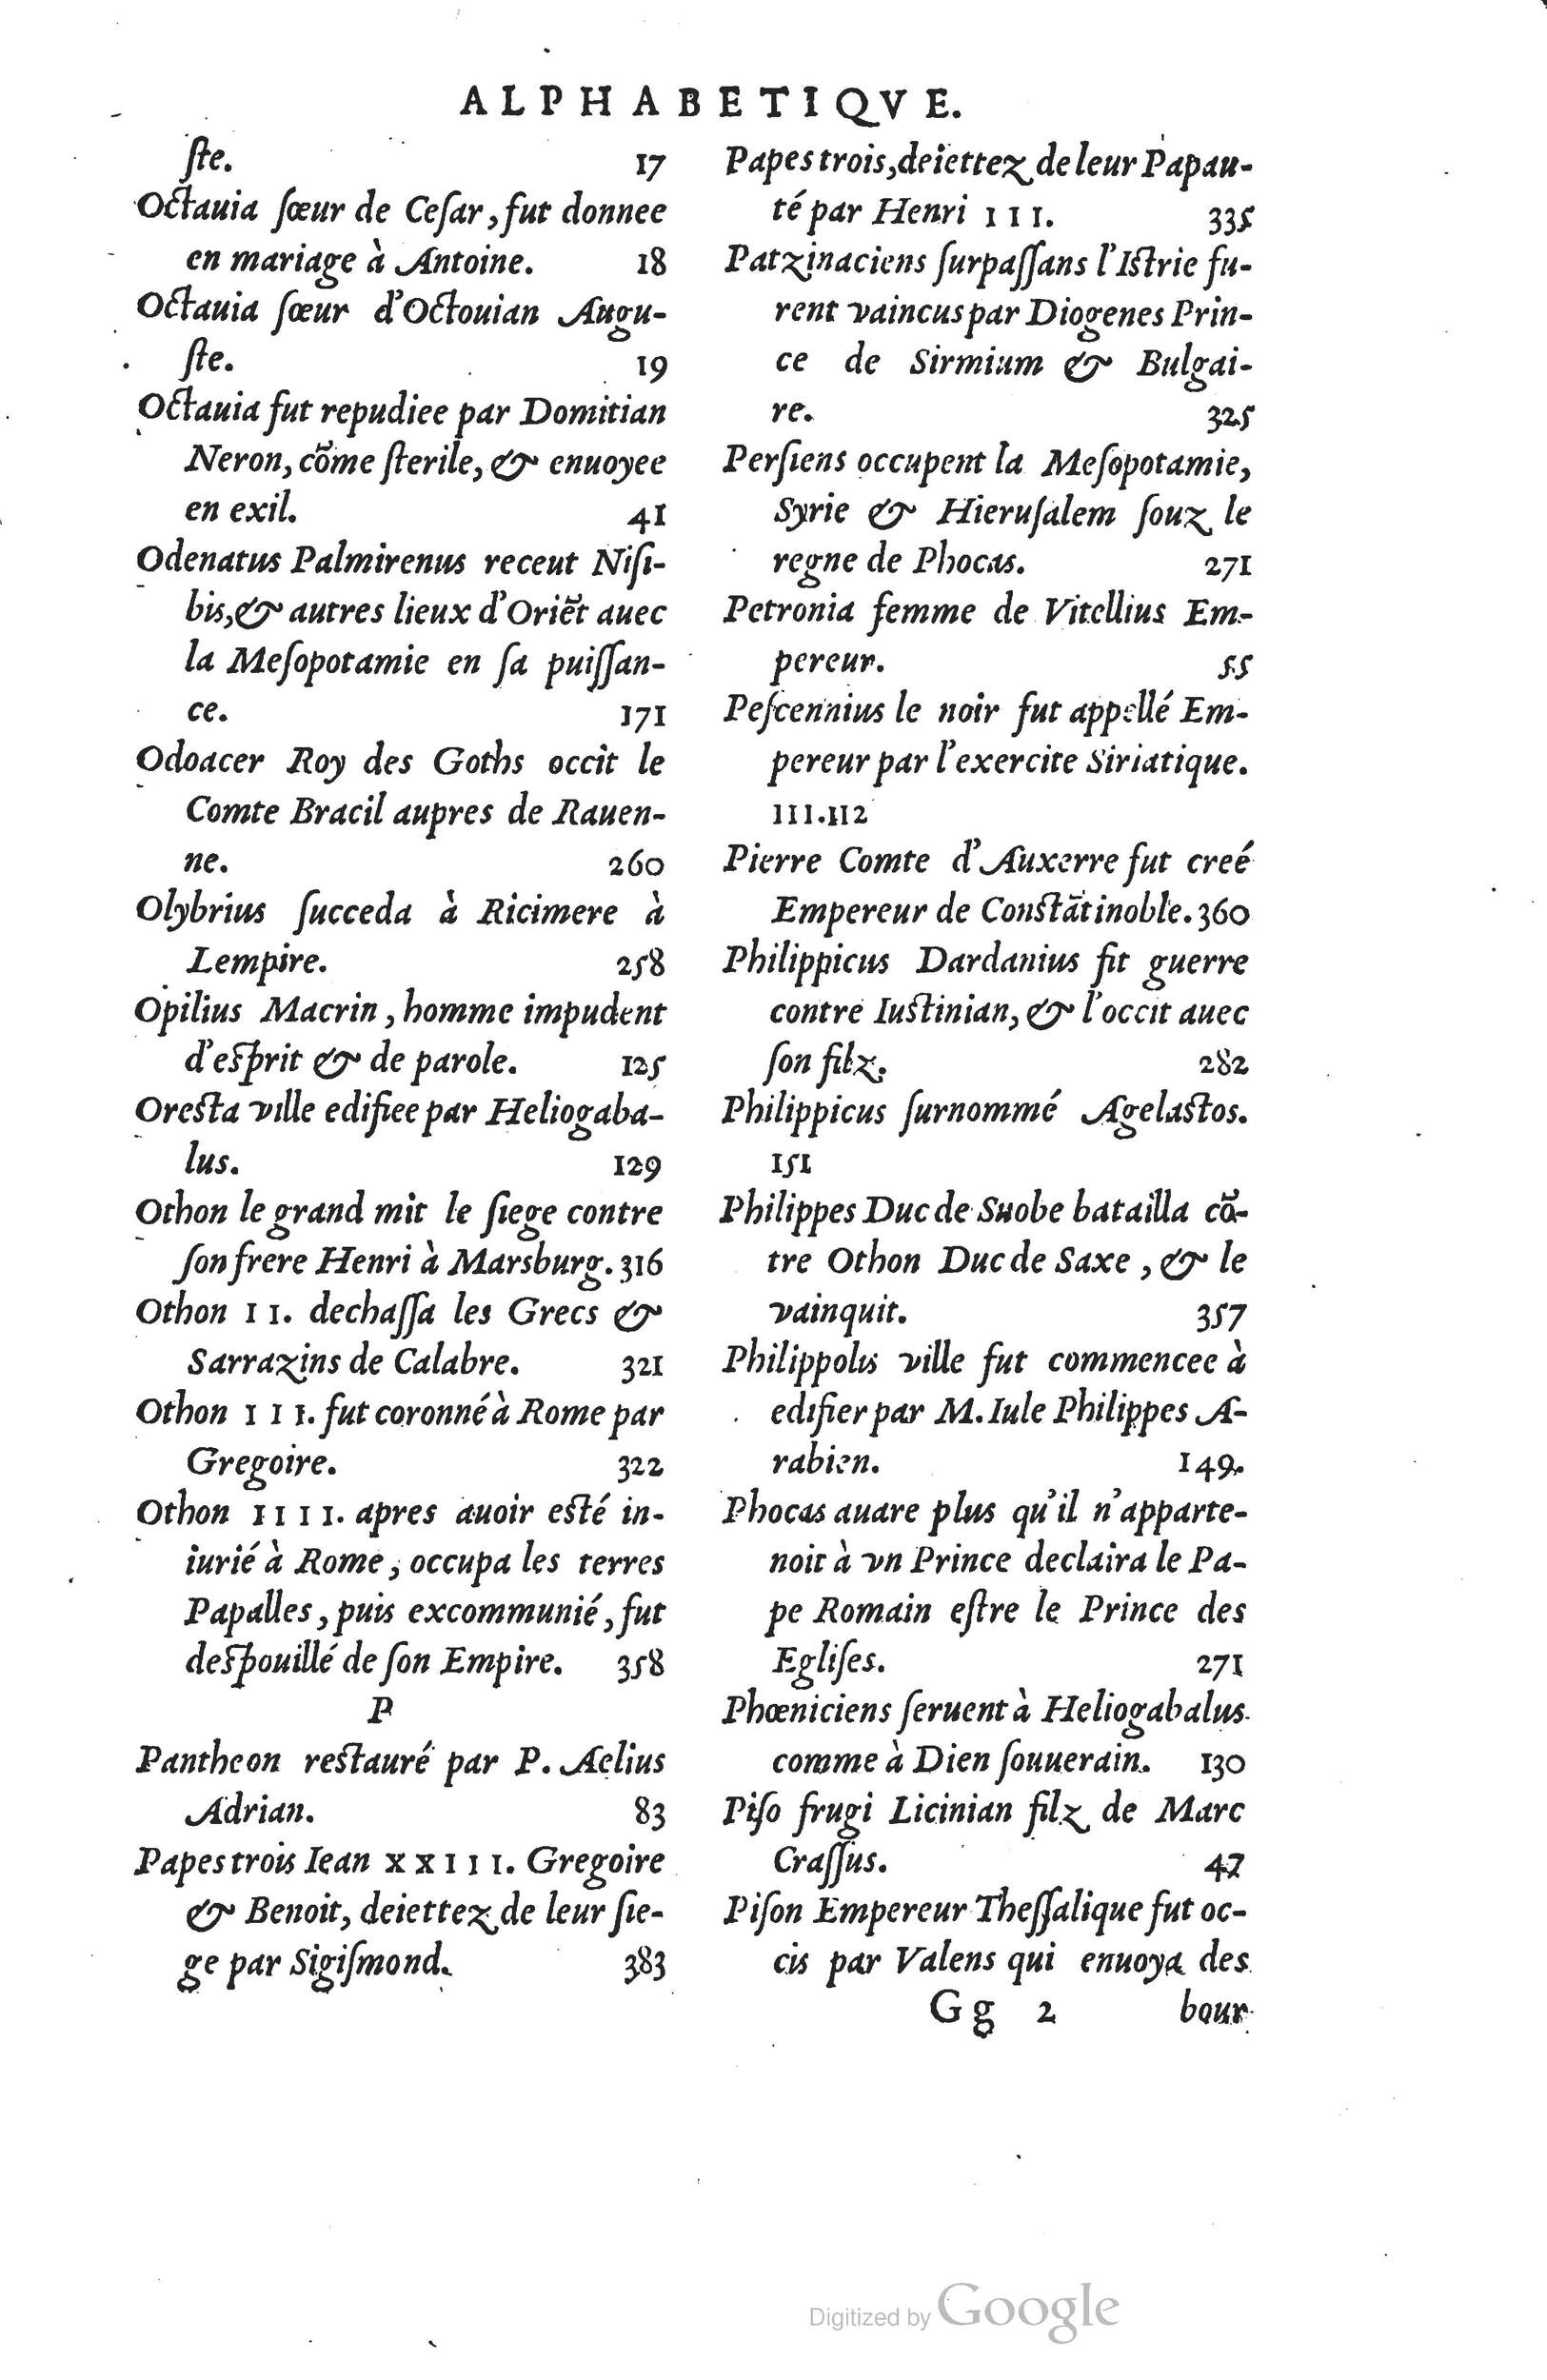 ALPHABETIQVE.
ſte. 17
Octauia ſœur de Ceſar, fut donnee
en mariage à Antoine. 18
Octauia ſœur d'Octouian Augu-
ſte. 19
Octauia fut repudiee par Domitian
Neron, cõme ſterile, & enuoyee
en exil. 41
Odenatus Palmirenus receut Niſi-
bis, & autres lieux d'Oriẽt auec
la Meſopotamie en ſa puiſſan-
ce. 171
Odoacer Roy des Goths occit le
Comte Bracil aupres de Rauen-
ne. 260
Olybrius ſucceda à Ricimere à
Lempire. 258
Opilius Macrin, homme impudent
d'eſprit & de parole. 125
Oreſta ville edifiee par Heliogaba-
lus. 129
Othon le grand mit le ſiege contre
ſon frere Henri à Marsburg. 316
Othon II. dechaſſa les Grecs &
Sarrazins de Calabre. 321
Othon III. fut coronné à Rome par
Gregoire. 322
Othon IIII. apres auoir eſté in-
iurié à Rome, occupa les terres
Papalles, puis excommunié, fut
deſpouillé de ſon Empire. 358
P
Pantheon reſtauré par P. Aelius
Adrian. 83
Papes trois Iean XXIII. Gregoire
& Benoit, deiettez de leur ſie-
ge par Sigiſmond. 383
Papes trois, deiettez de leur Papau-
té par Henri III. 335
Patzinaciens ſurpaſſans l'Iſtrie fu-
rent vaincus par Diogenes Prin-
ce de Sirmium & Bulgai-
re. 325
Perſiens occupent la Meſopotamie,
Syrie & Hieruſalem ſouz le
regne de Phocas. 271
Petronia femme de Vitellius Em-
pereur. 55
Peſcennius le noir fut appellé Em-
pereur par l'exercite Siriatique.
111.112
Pierre Comte d'Auxerre fut creé
Empereur de Conſtãtinoble. 360
Philippicus Dardanius fit guerre
contre Iuſtinian, & l'occit auec
ſon filz. 282
Philippicus ſurnommé Agelaſtos.
151
Philippes Duc de Suobe batailla cõ-
tre Othon Duc de Saxe, & le
vainquit. 357
Philippolis ville fut commencee à
edifier par M. Iule Philippes A-
rabien. 149.
Phocas auare plus qu'il n'apparte-
noit à vn Prince declaira le Pa-
pe Romain eſtre le Prince des
Egliſes. 271
Phœniciens ſeruent à Heliogabalus
comme à Dien ſouuerain. 130
Piſo frugi Licinian filz de Marc
Craſſus. 47
Piſon Empereur Theſſalique fut oc-
cis par Valens qui enuoya des
Gg 2 bour
Digitized by Google